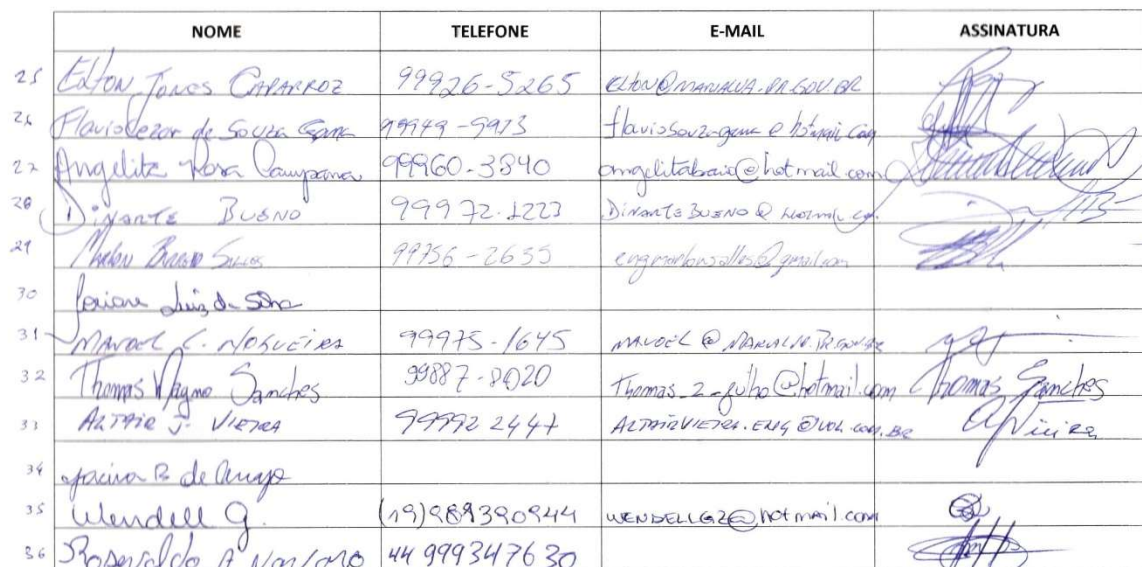 NOME TELEFONE E-MAIL ASSINATURA
25 Elton Jones Caparroz 99926-5265 elton@marialva.pr.gov.br
26 Flavio Cezar de Souza Gama 99949-9973 flaviosouzagama@hotmail.com
27 Angelita Rosa Campana 99960-3840 angelitabraio@hotmail.com
28 Dinarte Bueno 99972-1223 DinarteBueno@hotmail.com
29 99756-2655 engmarlonsalles@gmail.com
30 Luiz da Silva
31 Manoel C. Nogueira 99975-1645 manoel@marialva.pr.gov.br
32 Thomas Magno Sanches 99887-8020 Thomas_2_julho@hotmail.com Thomas Sanches
33 Altair J. Vieira 99992 2447 AltairVieira.eng@uol.com.br AVieira
34 Jacira B de
35 Wendell G. (19)989390944 WENDELLGZ@hotmail.com
36 Rosenaldo A 44 999347630